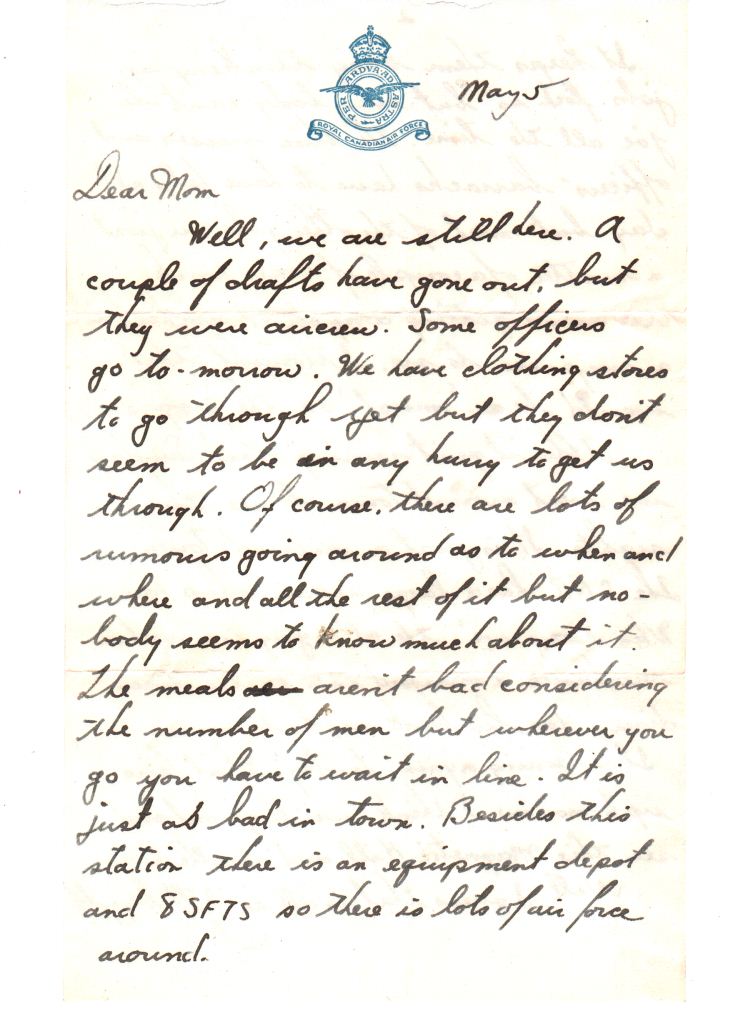 PER ARDVA AD ASTRA
ROYAL CANADIAN AIR FORCE
May 5
Dear Mom
Well, we are still here. A
couple of drafts have gone out, but
they were aircrew. Some officers
go to-morrow. We have clothing stores
to go through yet but they don't
seem to be in any hurry to get us
through. Of course, there are lots of
rumours going around as to when and
where and all the rest of it but no-
body seems to know much about it.
The meals aren't bad considering
the number of men but wherever you
go you have to wait in line. It is
just as bad in town. Besides this
station there is an equipment depot
and 8 SFTS so there is lots of air force
around.